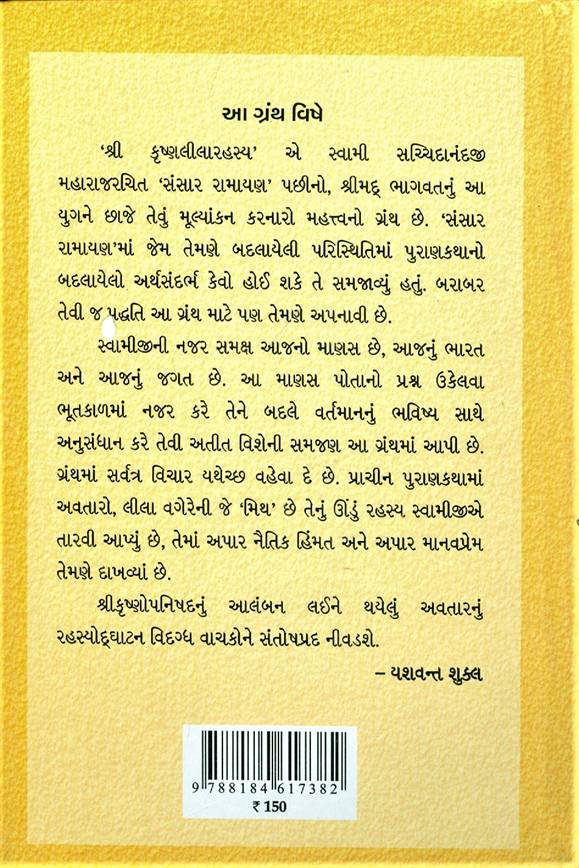 આ ગ્રંથ વિષે
‘શ્રી કૃષ્ણલીલારહસ્ય’ એ સ્વામી સચ્ચિદાનંદજી
મહારાજરચિત ‘સંસાર રામાયણ’ પછીનો, શ્રીમદ્ ભાગવતનું આ
યુગને છાજે તેવું મૂલ્યાંકન કરનારો મહત્ત્વનો ગ્રંથ છે. ‘સંસાર
રામાયણ’માં જેમ તેમણે બદલાયેલી પરિસ્થિતિમાં પુરાણકથાનો
બદલાયેલો અર્થસંદર્ભ કેવો હોઈ શકે તે સમજાવ્યું હતું. બરાબર
તેવી જ પદ્ધતિ આ ગ્રંથ માટે પણ તેમણે અપનાવી છે.
સ્વામીજીની નજર સમક્ષ આજનો માણસ છે, આજનું ભારત
અને આજનું જગત છે. આ માણસ પોતાનો પ્રશ્ન ઉકેલવા
ભૂતકાળમાં નજર કરે તેને બદલે વર્તમાનનું ભવિષ્ય સાથે
અનુસંધાન કરે તેવી અતીત વિશેની સમજણ આ ગ્રંથમાં આપી છે.
ગ્રંથમાં સર્વત્ર વિચાર યથેચ્છ વહેવા દે છે. પ્રાચીન પુરાણકથામાં
અવતારો, લીલા વગેરેની જે ‘મિથ’ છે તેનું ઊંડું રહસ્ય સ્વામીજીએ
તારવી આપ્યું છે, તેમાં અપાર નૈતિક હિંમત અને અપાર માનવપ્રેમ
તેમણે દાખવ્યાં છે.
શ્રીકૃષ્ણોપનિષદનું આલંબન લઈને થયેલું અવતારનું
રહસ્યોદ્ઘાટન વિદગ્ધ વાચકોને સંતોષપ્રદ નીવડશે.
– યશવન્ત શુક્લ
9 788184 617382
₹ 150